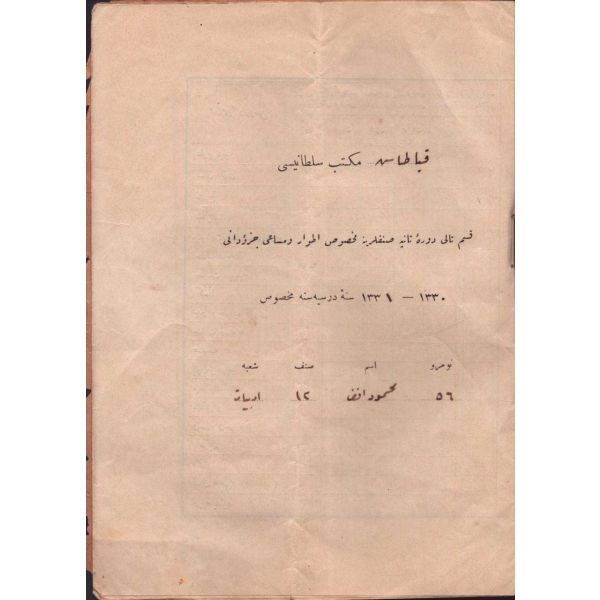 قباطاش مكتب سلطانيسى
قسم تالى دورۀ ثانيه صنفلرينه مخصوص اطوار ومساعى جزؤدانى
١٣٣٠ – ١٣٣١ سنۀ درسيه سنه مخصوص
نومرو اسم صنف شعبه
٥٦ محمود افندى ١٢ ادبيات